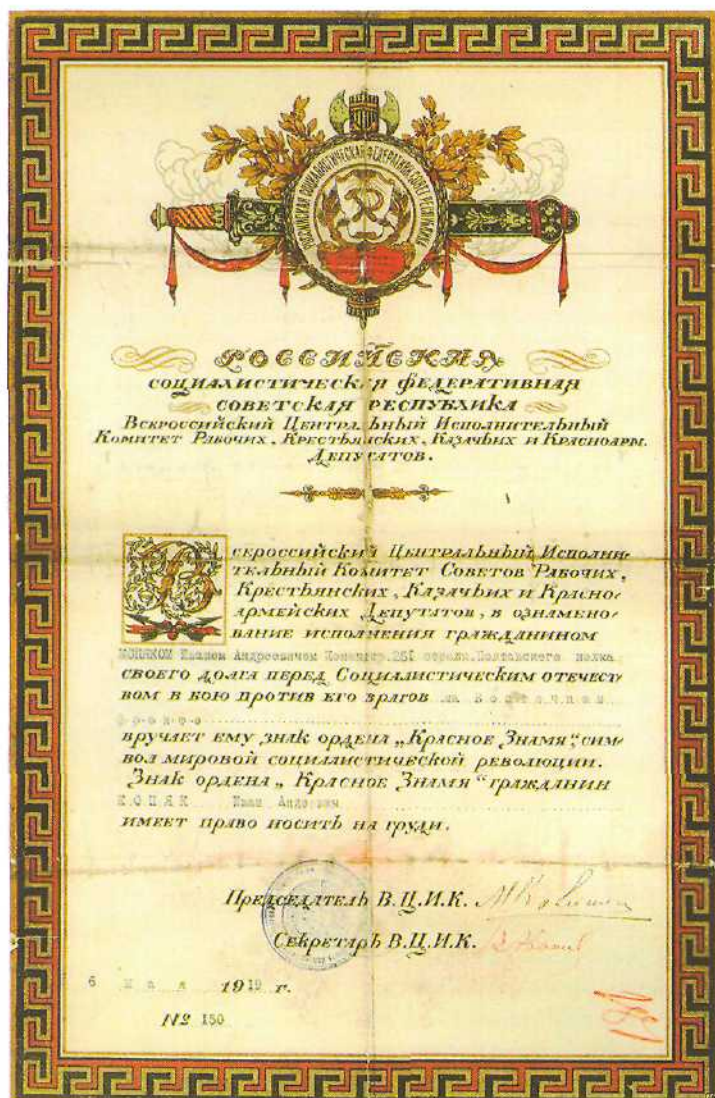 РОССИЙСКАЯ СОЦИАЛИСТИЧЕСКАЯ ФЕДЕРАТИВН. СОВЕТ. РЕСПУБЛИКА
РОССИЙСКАЯ
СОЦИАЛИСТИЧЕСКАЯ ФЕДЕРАТИВНАЯ
СОВЕТСКАЯ РЕСПУБЛИКА
Всероссийский Центральный Исполнительный
Комитет Рабочих, Крестьянских, Казачьих и Красноарм.
Депутатов.
Всероссийский Центральный Исполни-
тельный Комитет Советов Рабочих,
Крестьянских, Казачьих и Красно-
армейских Депутатов, в ознамено-
вание исполнения гражданином
КОПЯКОМ Иваном Андреевичем Командир. 261 стрелк. Полтавского полка
своего долга перед Социалистическим отечест-
вом в бою против его врагов на Восточном
фронте
вручает ему знак ордена „Красное Знамя“, сим-
вол мировой социалистической революции.
Знак ордена „Красное Знамя“ гражданин
КОПЯК Иван
имеет право носить на груди.
Председатель В.Ц.И.К. М Калинин
Секретарь В.Ц.И.К.
6 мая 1919 г.
№ 150